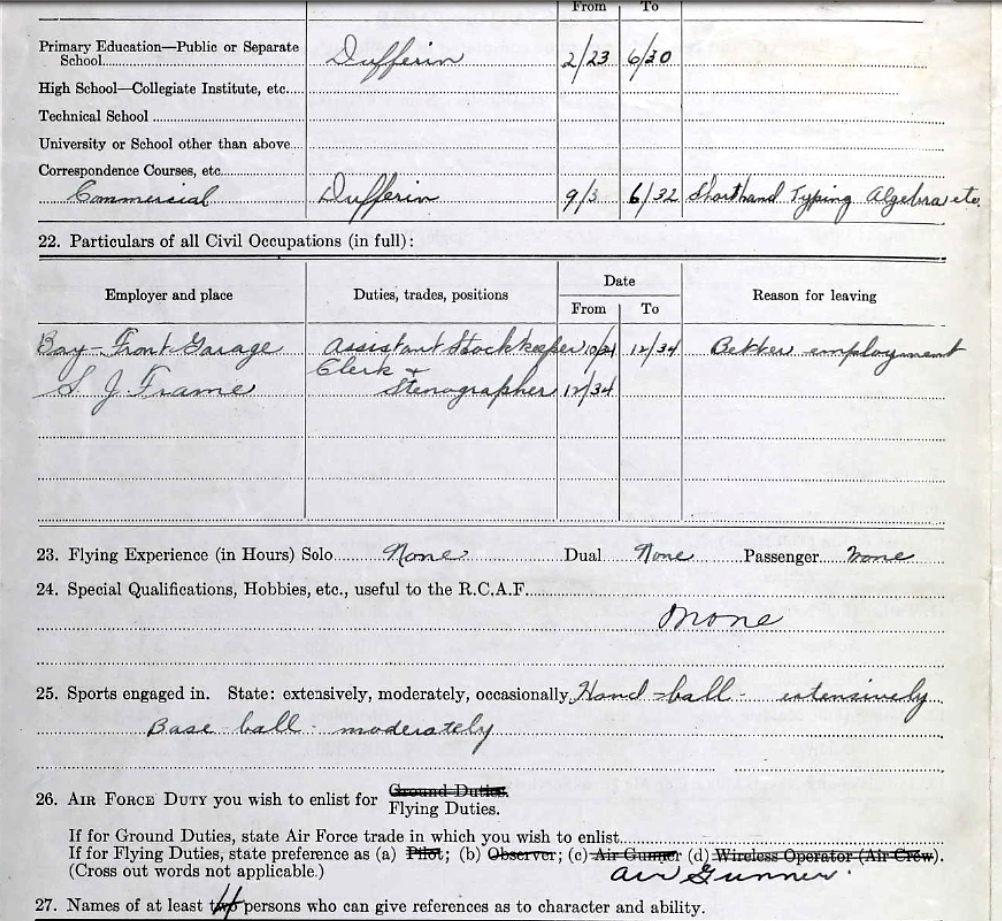 From To
Primary Education—Public or Separate
School Dufferin 2/23 6/30
High School—Collegiate Institute, etc.
Technical School
University or School other than above
Correspondence Courses, etc.
Commercial Dufferin 9/3 6/32 Shorthand Typing Algebra etc.
22. Particulars of all Civil Occupations (in full):
Employer and place Duties, trades, positions Date Reason for leaving
From To
Bay-Front Garage Assistant Stockkeeper 10/34 12/34 Better employment
S. J. Frame Clerk +
Stenographer 12/34
23. Flying Experience (in Hours) Solo None Dual None Passenger None
24. Special Qualifications, Hobbies, etc., useful to the R.C.A.F.
None
25. Sports engaged in. State: extensively, moderately, occasionally Hand-ball - extensively
Base ball moderately
26. AIR FORCE DUTY you wish to enlist for Ground Duties.
Flying Duties.
If for Ground Duties, state Air Force trade in which you wish to enlist
If for Flying Duties, state preference as (a) Pilot; (b) Observer; (c) Air Gunner (d) Wireless Operator (Air Crew).
(Cross out words not applicable.) Air Gunner.
27. Names of at least two 4 persons who can give references as to character and ability.